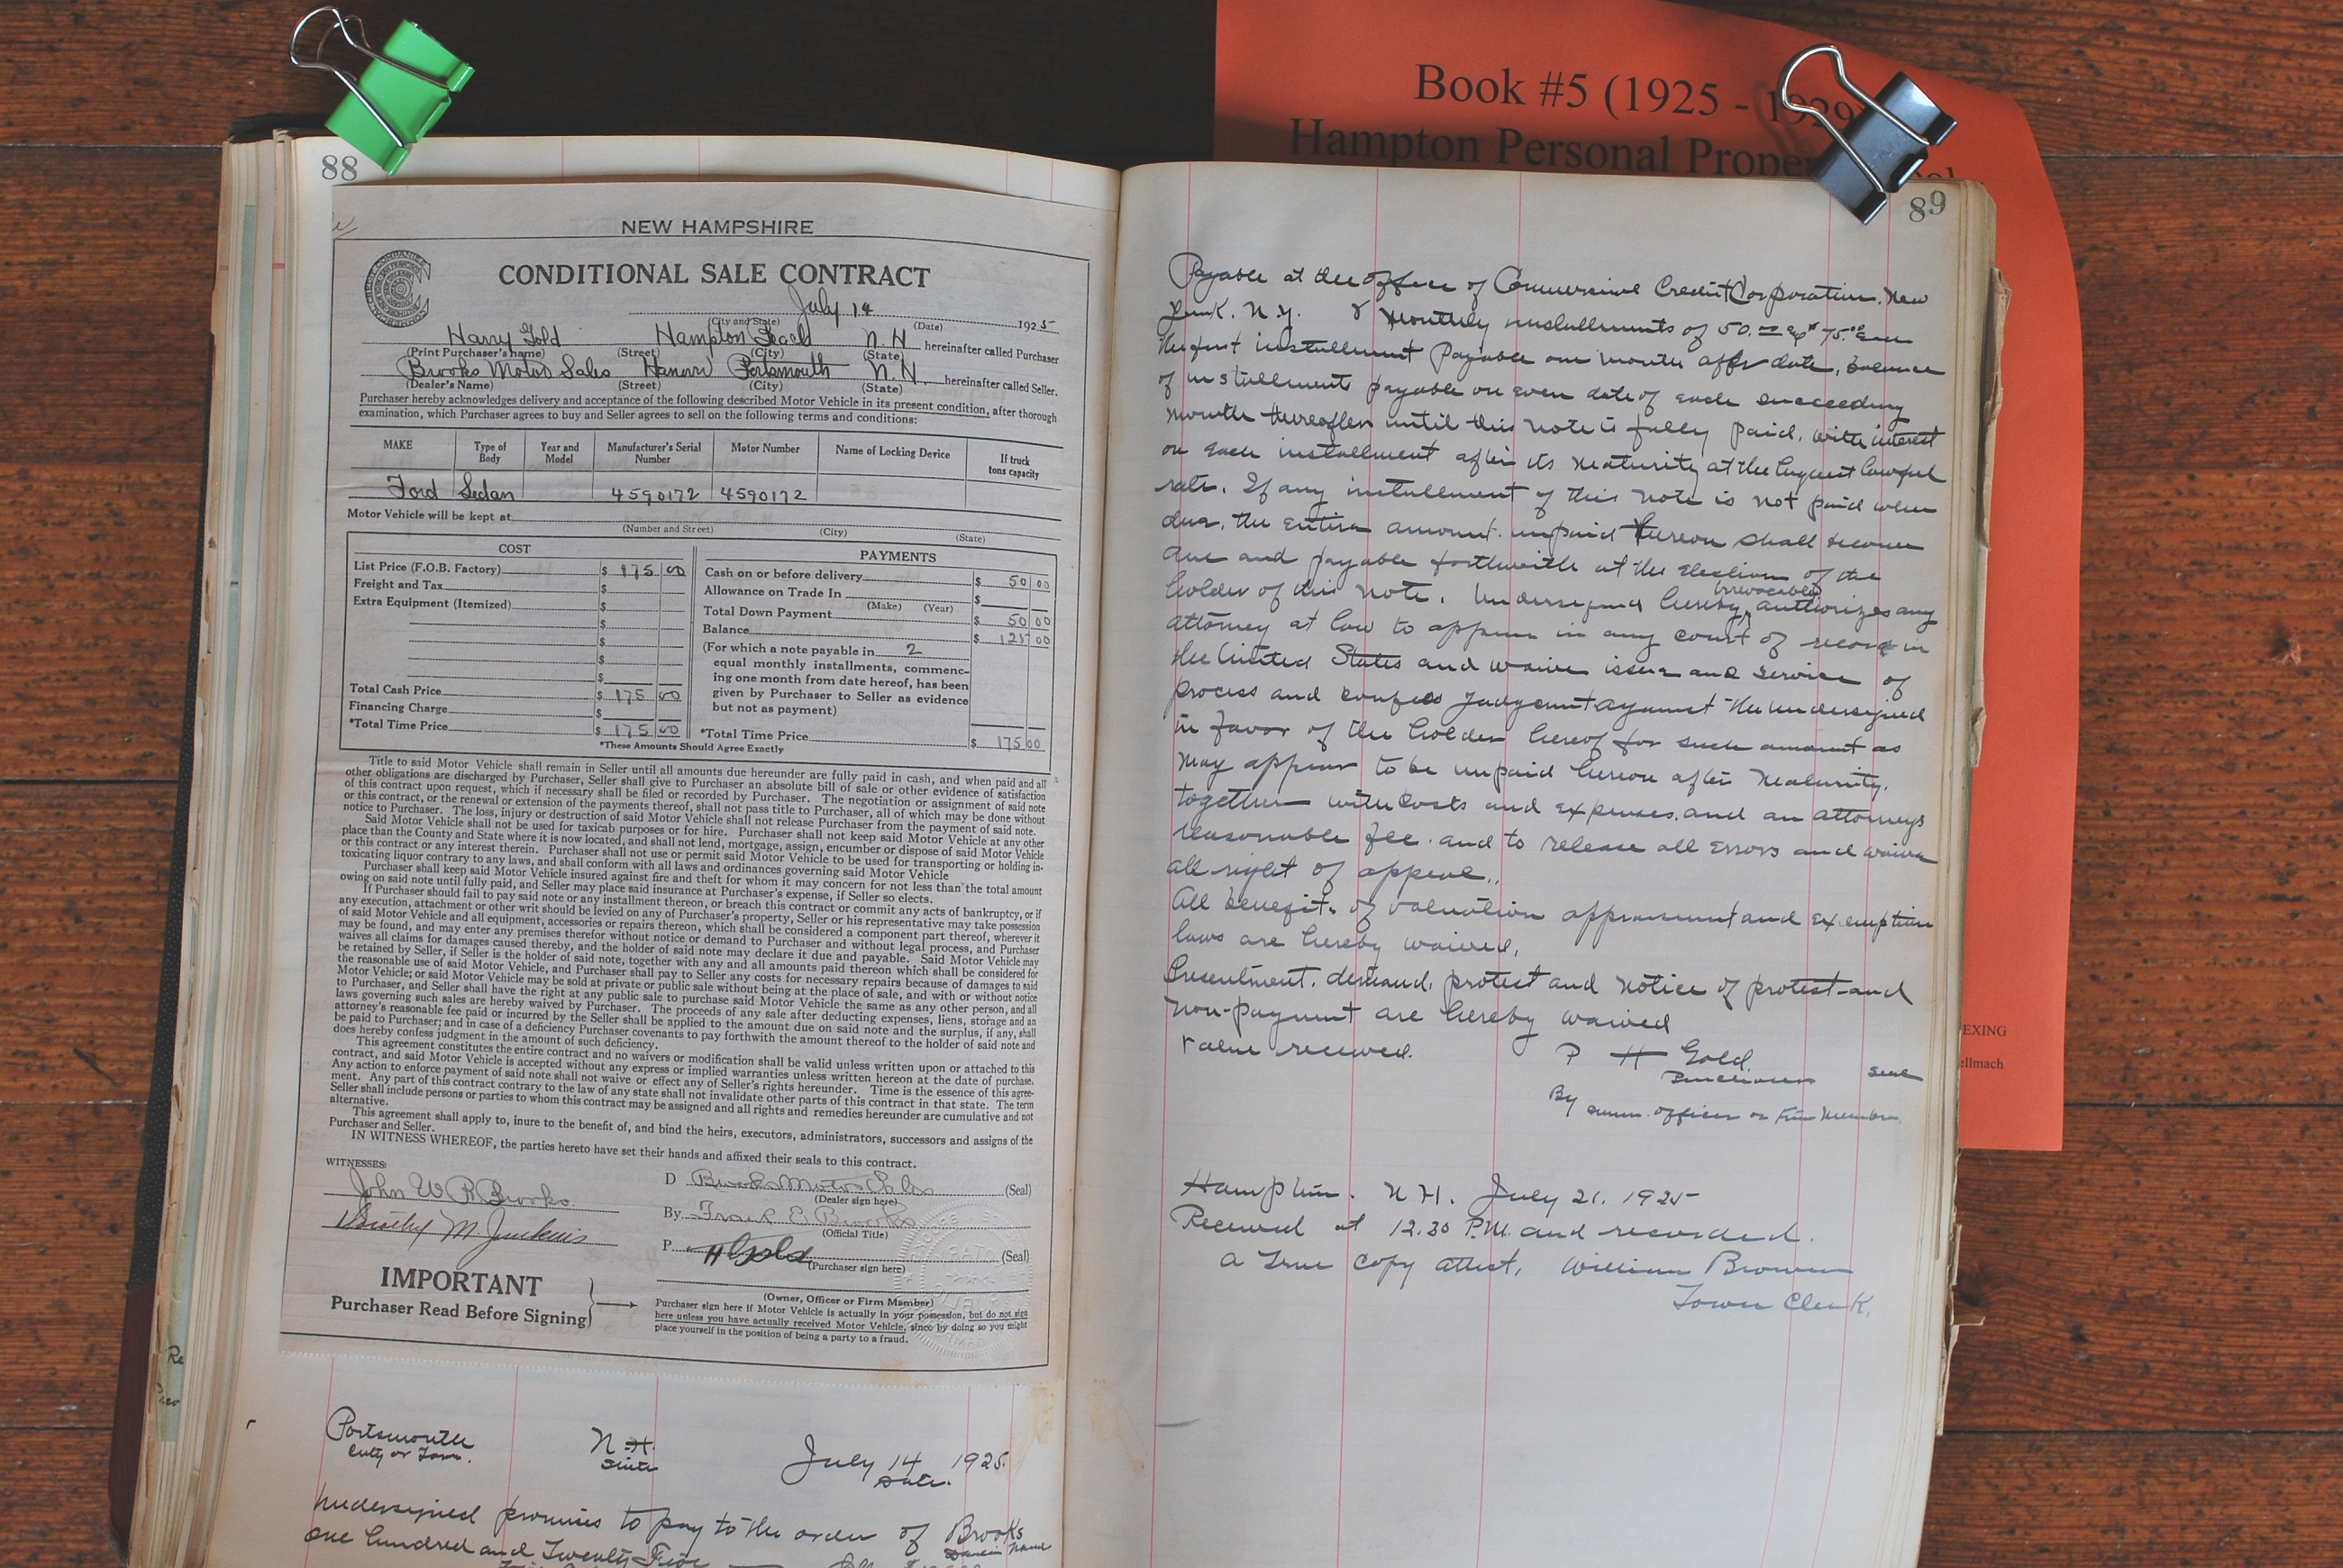 Book #5 (1925 - 1929)
Hampton Personal Proper
88
NEW HAMPSHIRE
CONDITIONAL SALE CONTRACT
July 14 1925
(City and State) (Date)
Harry Gold Hampton Beach N.H. hereinafter called Purchaser
(Print Purchaser's name) (Street) (City) (State)
Brooks Motor Sales Portsmouth N.H. hereinafter called Seller.
(Dealer's Name) (Street) (City) (State)
Purchaser hereby acknowledges delivery and acceptance of the following described Motor Vehicle in its present condition, after thorough
examination, which Purchaser agrees to buy and Seller agrees to sell on the following terms and conditions:
MAKE Type of Body Year and Model Manufacturer's Serial Number Motor Number Name of Locking Device If truck tons capacity
Ford Sedan 4590172 4590172
Motor Vehicle will be kept at
(Number and Street) (City) (State)
COST
List Price (F.O.B. Factory) $ 175 00
Freight and Tax $
Extra Equipment (Itemized) $
$
$
$
$
Total Cash Price $ 175 00
Financing Charge $
*Total Time Price $ 175 00
PAYMENTS
Cash on or before delivery $ 50 00
Allowance on Trade In $
(Make) (Year)
Total Down Payment $ 50 00
Balance $ 125 00
(For which a note payable in 2
equal monthly installments, commenc-
ing one month from date hereof, has been
given by Purchaser to Seller as evidence
but not as payment)
*Total Time Price $ 175 00
*These Amounts Should Agree Exactly
Title to said Motor Vehicle shall remain in Seller until all amounts due hereunder are fully paid in cash, and when paid and all
other obligations are discharged by Purchaser, Seller shall give to Purchaser an absolute bill of sale or other evidence of satisfaction
of this contract upon request, which if necessary shall be filed or recorded by Purchaser. The negotiation or assignment of said note
or this contract, or the renewal or extension of the payments thereof, shall not pass title to Purchaser, all of which may be done without
notice to Purchaser. The loss, injury or destruction of said Motor Vehicle shall not release Purchaser from the payment of said note.
Said Motor Vehicle shall not be used for taxicab purposes or for hire. Purchaser shall not keep said Motor Vehicle at any other
place than the County and State where it is now located, and shall not lend, mortgage, assign, encumber or dispose of said Motor Vehicle
or this contract or any interest therein. Purchaser shall not use or permit said Motor Vehicle to be used for transporting or holding in-
toxicating liquor contrary to any laws, and shall conform with all laws and ordinances governing said Motor Vehicle
Purchaser shall keep said Motor Vehicle insured against fire and theft for whom it may concern for not less than the total amount
owing on said note until fully paid, and Seller may place said insurance at Purchaser's expense, if Seller so elects.
If Purchaser should fail to pay said note or any installment thereon, or breach this contract or commit any acts of bankruptcy, or if
any execution, attachment or other writ should be levied on any of Purchaser's property, Seller or his representative may take possession
of said Motor Vehicle and all equipment, accessories or repairs thereon, which shall be considered a component part thereof, wherever it
may be found, and may enter any premises therefor without notice or demand to Purchaser and without legal process, and Purchaser
waives all claims for damages caused thereby, and the holder of said note may declare it due and payable. Said Motor Vehicle may
be retained by Seller, if Seller is the holder of said note, together with any and all amounts paid thereon which shall be considered for
the reasonable use of said Motor Vehicle, and Purchaser shall pay to Seller any costs for necessary repairs because of damages to said
Motor Vehicle; or said Motor Vehicle may be sold at private or public sale without being at the place of sale, and with or without notice
to Purchaser, and Seller shall have the right at any public sale to purchase said Motor Vehicle the same as any other person, and all
laws governing such sales are hereby waived by Purchaser. The proceeds of any sale after deducting expenses, liens, storage and an
attorney's reasonable fee paid or incurred by the Seller shall be applied to the amount due on said note and the surplus, if any, shall
be paid to Purchaser; and in case of a deficiency Purchaser covenants to pay forthwith the amount thereof to the holder of said note and
does hereby confess judgment in the amount of such deficiency.
This agreement constitutes the entire contract and no waivers or modification shall be valid unless written upon or attached to this
contract, and said Motor Vehicle is accepted without any express or implied warranties unless written hereon at the date of purchase.
Any action to enforce payment of said note shall not waive or effect any of Seller's rights hereunder. Time is the essence of this agree-
ment. Any part of this contract contrary to the law of any state shall not invalidate other parts of this contract in that state. The term
Seller shall include persons or parties to whom this contract may be assigned and all rights and remedies hereunder are cumulative and not
alternative.
This agreement shall apply to, inure to the benefit of, and bind the heirs, executors, administrators, successors and assigns of the
Purchaser and Seller.
IN WITNESS WHEREOF, the parties hereto have set their hands and affixed their seals to this contract.
WITNESSES:
John W R Brooks
M. Junkins
D Brooks Motor Sales (Seal)
(Dealer sign here)
By Frank E Brooks
(Official Title)
P. H Gold (Seal)
(Purchaser sign here)
(Owner, Officer or Firm Member)
IMPORTANT
Purchaser Read Before Signing
Purchaser sign here if Motor Vehicle is actually in your possession, but do not sign
here unless you have actually received Motor Vehicle, since by doing so you might
place yourself in the position of being a party to a fraud.
Portsmouth N H. July 14 1925
City or Town. State Date.
Undersigned promises to pay to the order of Brooks
Name
one hundred and Twenty Five
89
Payable at the office of Commercial Credit Corporation. New
York. N.Y. 2 Monthly installments of 50.00 & 75.00
The first installment Payable one month after date, balance
of installments payable on even date of each succeeding
month thereafter until this note is fully paid, with interest
on each installment after its maturity at the highest lawful
rate. If any installment of this note is not paid when
due, the entire amount unpaid hereon shall become
due and payable forthwith at the election of the
holder of this note. Undersigned hereby irrevocably authorizes any
attorney at law to appear in any court of record in
the United States and waive issue and service of
process and confess judgement against the undersigned
in favor of the holder hereof for such amount as
may appear to be unpaid hereon after maturity,
together with costs and expenses. and an attorneys
reasonable fee. and to release all errors and waive
all right of appeal.
All benefits of valuation appraisment and exemption
laws are hereby waived,
Presentment. demand, protest and notice of protest and
non-payment are hereby waived
Value received. P H Gold
Purchaser seal
By owner. officer or Firm Member.
Hampton. N H. July 21. 1925
Received at 12.30 P.M. and recorded.
a True copy attest, William Brown
Town Clerk.
EXING
ellmach